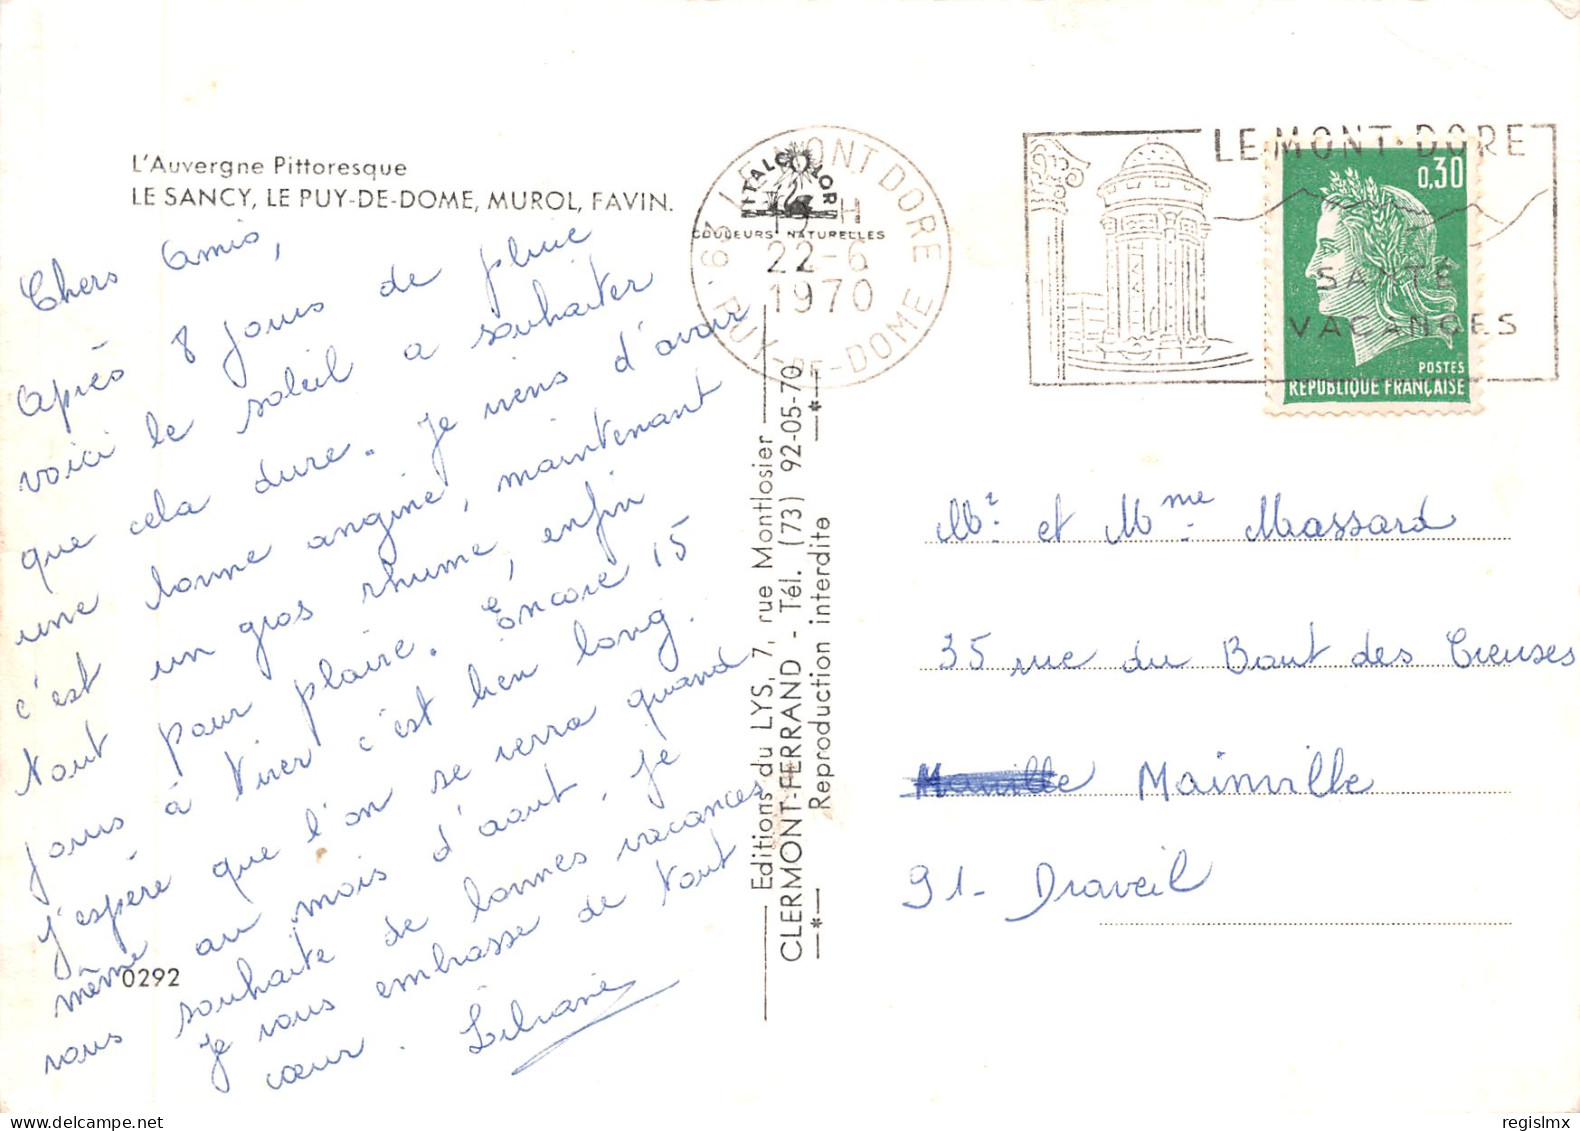 L'Auvergne Pittoresque
LE SANCY, LE PUY-DE-DOME, MUROL, FAVIN.
Chers Amis,
Après 8 jours de pluie
voici le soleil a souhaiter
que cela dure. Je viens d'avoir
une bonne angine, maintenant
c'est un gros rhume, enfin
tout pour plaire. Encore 15
jours à tirer c'est bien long.
J'espère que l'on se verra quand
même au mois d'aout, je
vous souhaite de bonnes vacances
Je vous embrasse de tout
cœur. Liliane
0292
Editions du LYS, 7, rue Montlosier
CLERMONT-FERRAND - Tél. (73) 92-05-70
Reproduction interdite
ITALCOLOR
COULEURS NATURELLES
63 LE MONT DORE
H
22-6
1970
PUY-DE-DOME
LE MONT-DORE
SANTÉ
VACANCES
0,30
POSTES
REPUBLIQUE FRANÇAISE
Mr. et Mme. Massard
35 rue du Bout des Creuses
Mainville
91- Draveil
regislmx